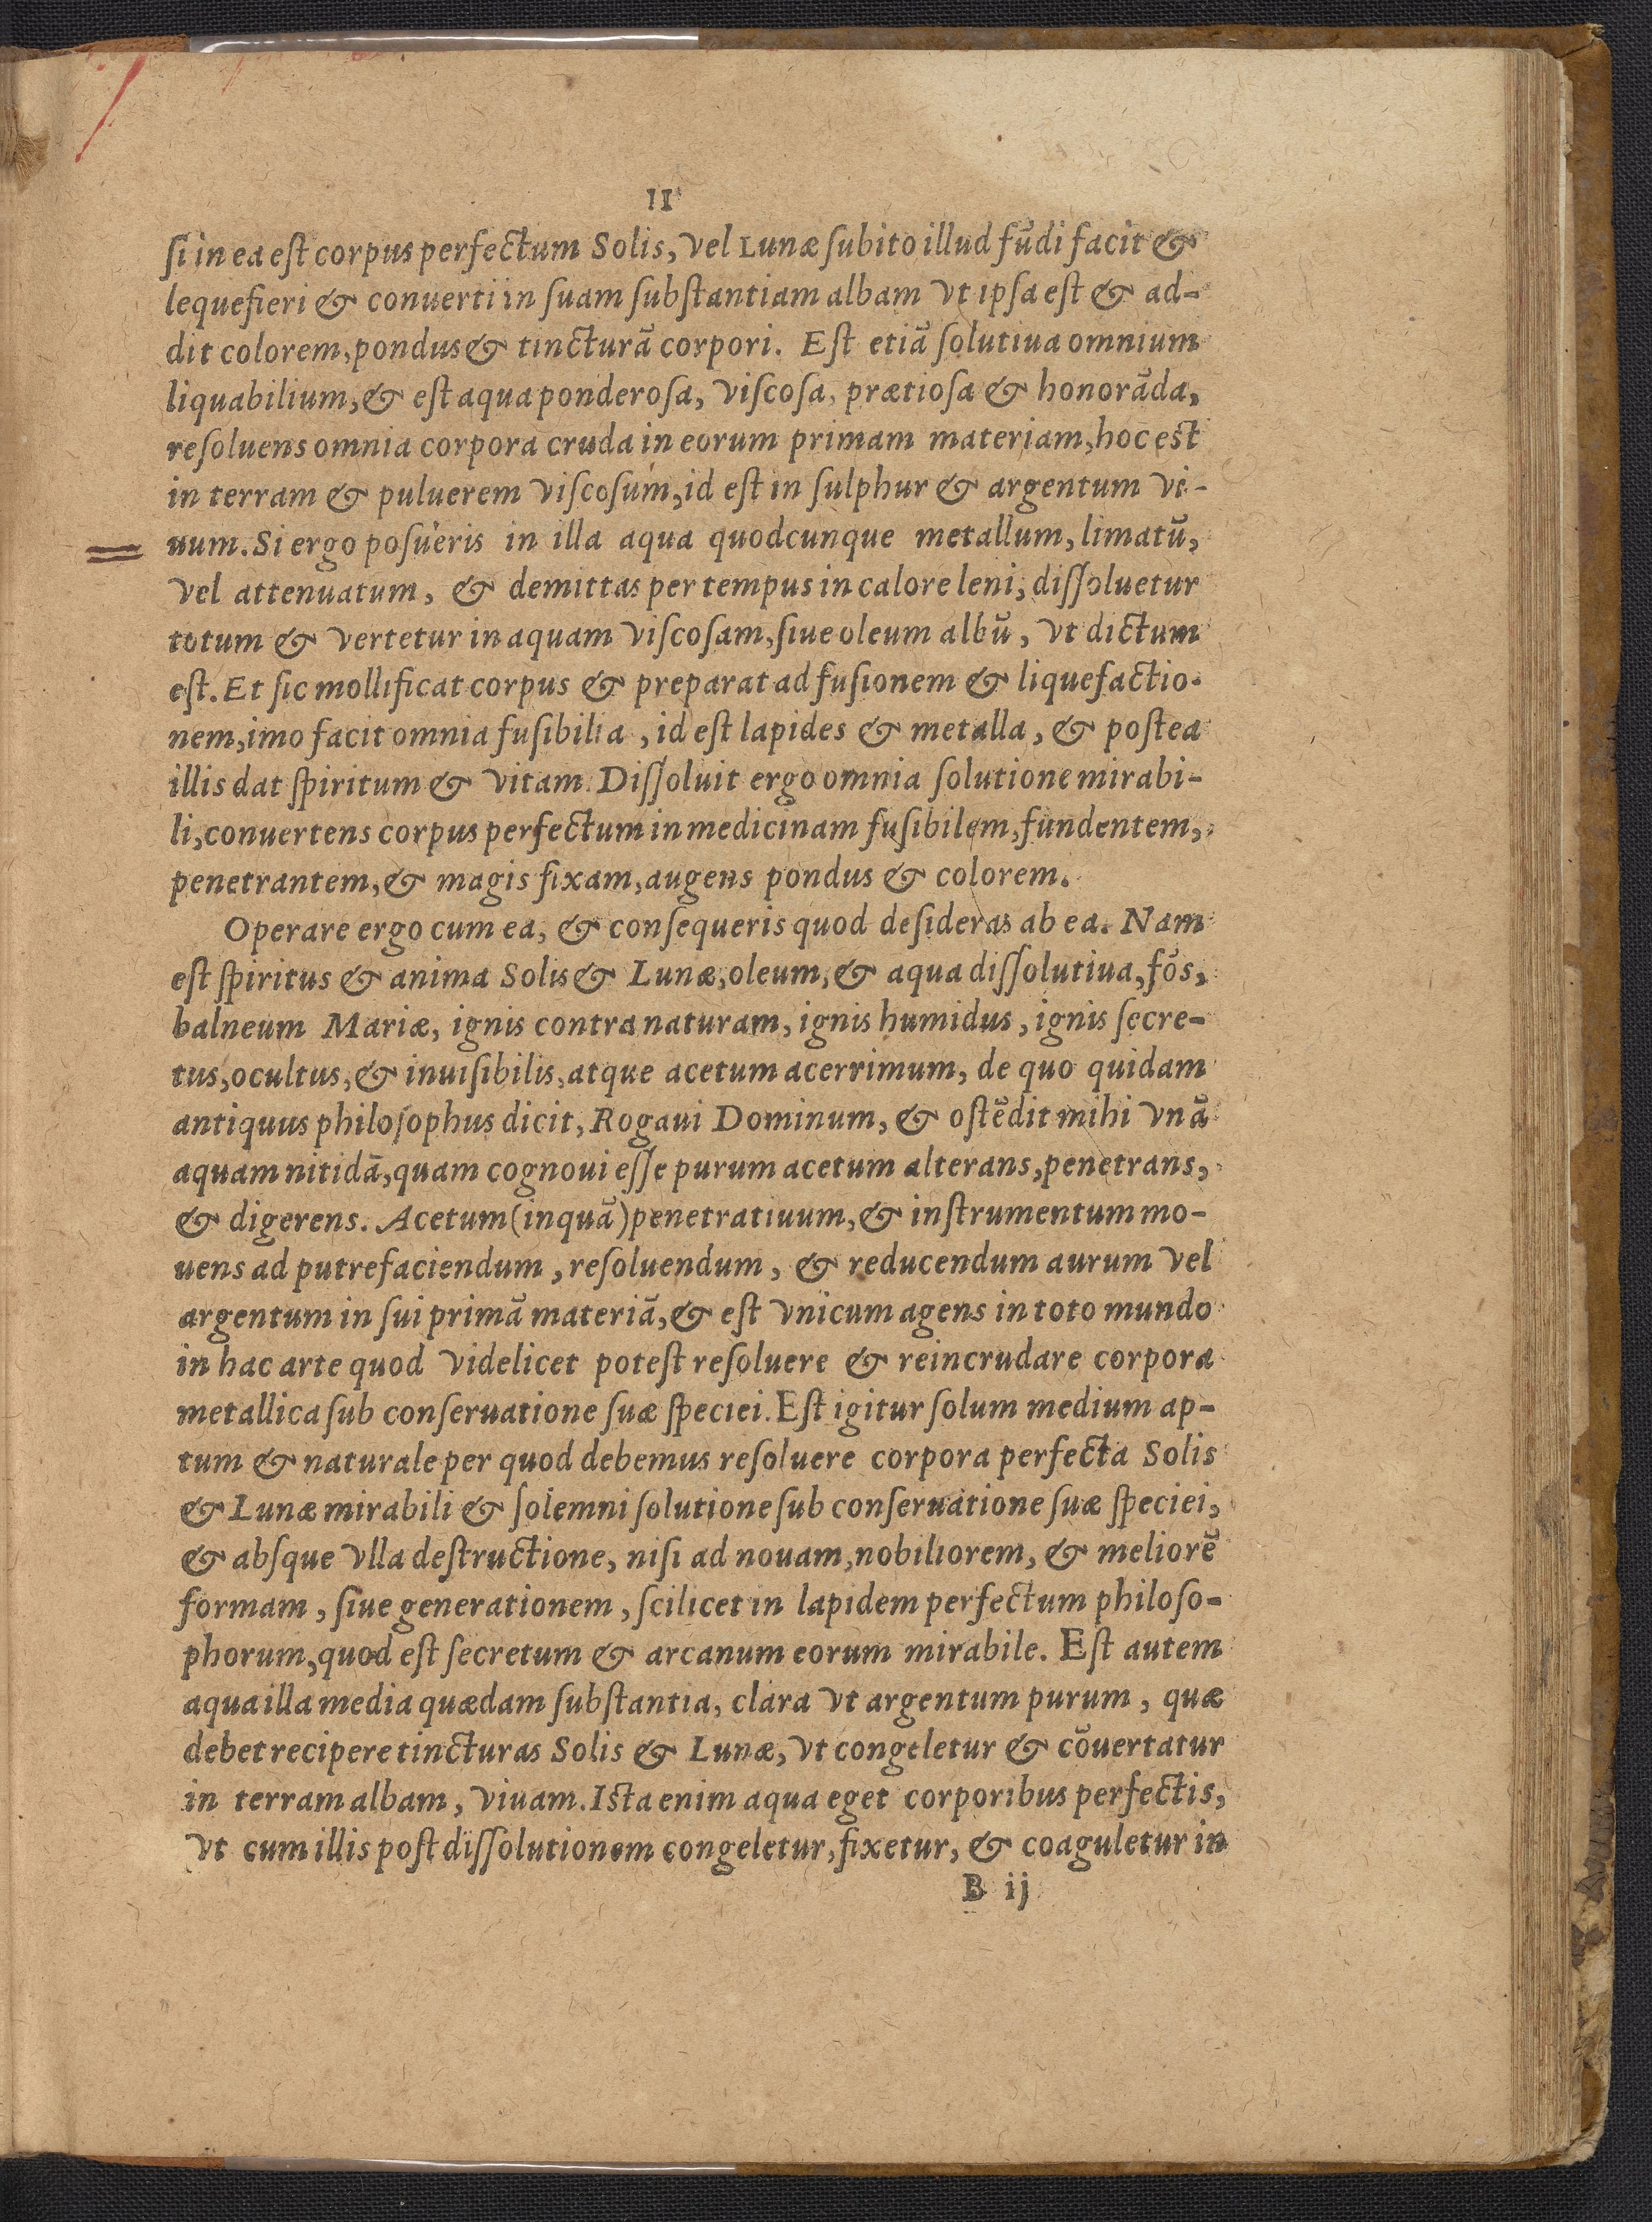 11
ſi in ea eſt corpus perfectum Solis, vel Lunæ ſubito illud fūdi facit &
lequefieri & conuerti in ſuam ſubſtantiam albam vt ipſa eſt & ad-
dit colorem, pondus & tincturā corpori. Eſt etiā ſolutiua omnium
liquabilium, & eſt aqua ponderoſa, viſcoſa, prætioſa & honorāda,
reſoluens omnia corpora cruda in eorum primam materiam, hoc est
in terram & puluerem viſcoſum, id eſt in ſulphur & argentum vi-
uum. Si ergo poſueris in illa aqua quodcunque metallum, limatū,
vel attenuatum, & demittas per tempus in calore leni, diſſoluetur
totum & vertetur in aquam viſcoſam, ſiue oleum albū, vt dictum
eſt. Et ſic mollificat corpus & preparat ad fuſionem & liquefactio-
nem, imo facit omnia fuſibilia, id eſt lapides & metalla, & poſtea
illis dat ſpiritum & vitam. Diſſoluit ergo omnia ſolutione mirabi-
li, conuertens corpus perfectum in medicinam fuſibilem, fundentem,
penetrantem, & magis fixam, augens pondus & colorem.
Operare ergo cum ea, & conſequeris quod deſideras ab ea. Nam
eſt ſpiritus & anima Solis & Lunæ, oleum, & aqua diſſolutiua, fōs,
balneum Mariæ, ignis contra naturam, ignis humidus, ignis ſecre-
tus, ocultus, & inuiſibilis, atque acetum acerrimum, de quo quidam
antiquus philoſophus dicit, Rogaui Dominum, & oſtēdit mihi vnā
aquam nitidā, quam cognoui eſſe purum acetum alterans, penetrans,
& digerens. Acetum (inquā) penetratiuum, & inſtrumentum mo-
uens ad putrefaciendum, reſoluendum, & reducendum aurum vel
argentum in ſui primā materiā, & eſt vnicum agens in toto mundo
in hac arte quod videlicet poteſt reſoluere & reincrudare corpora
metallica ſub conſeruatione ſuæ ſpeciei. Eſt igitur ſolum medium ap-
tum & naturale per quod debemus reſoluere corpora perfecta Solis
& Lunæ mirabili & ſolemni ſolutione ſub conſeruatione ſuæ ſpeciei,
& abſque vlla deſtructione, niſi ad nouam, nobiliorem, & meliorē
formam, ſiue generationem, ſcilicet in lapidem perfectum philoſo-
phorum, quod eſt ſecretum & arcanum eorum mirabile. Eſt autem
aqua illa media quædam ſubſtantia, clara vt argentum purum, quæ
debet recipere tincturas Solis & Lunæ, vt congeletur & cōuertatur
in terram albam, viuam. Ista enim aqua eget corporibus perfectis,
vt cum illis poſt diſſolutionem congeletur, fixetur, & coaguletur in
B ij